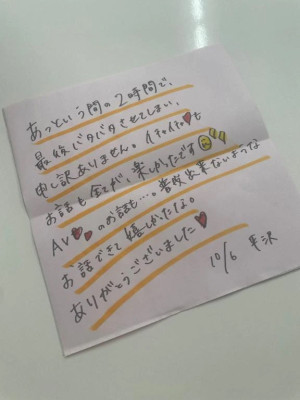 あっという間の2時間で、
最後バタバタさせてしまい、
申し訳ありません。イチャイチャ♥も
お話も全てが、楽しかったです
AV♥♥のお話も…。普段出来ないような
お話できて嬉しかったな。
ありがとうございました♥
10/6 半沢